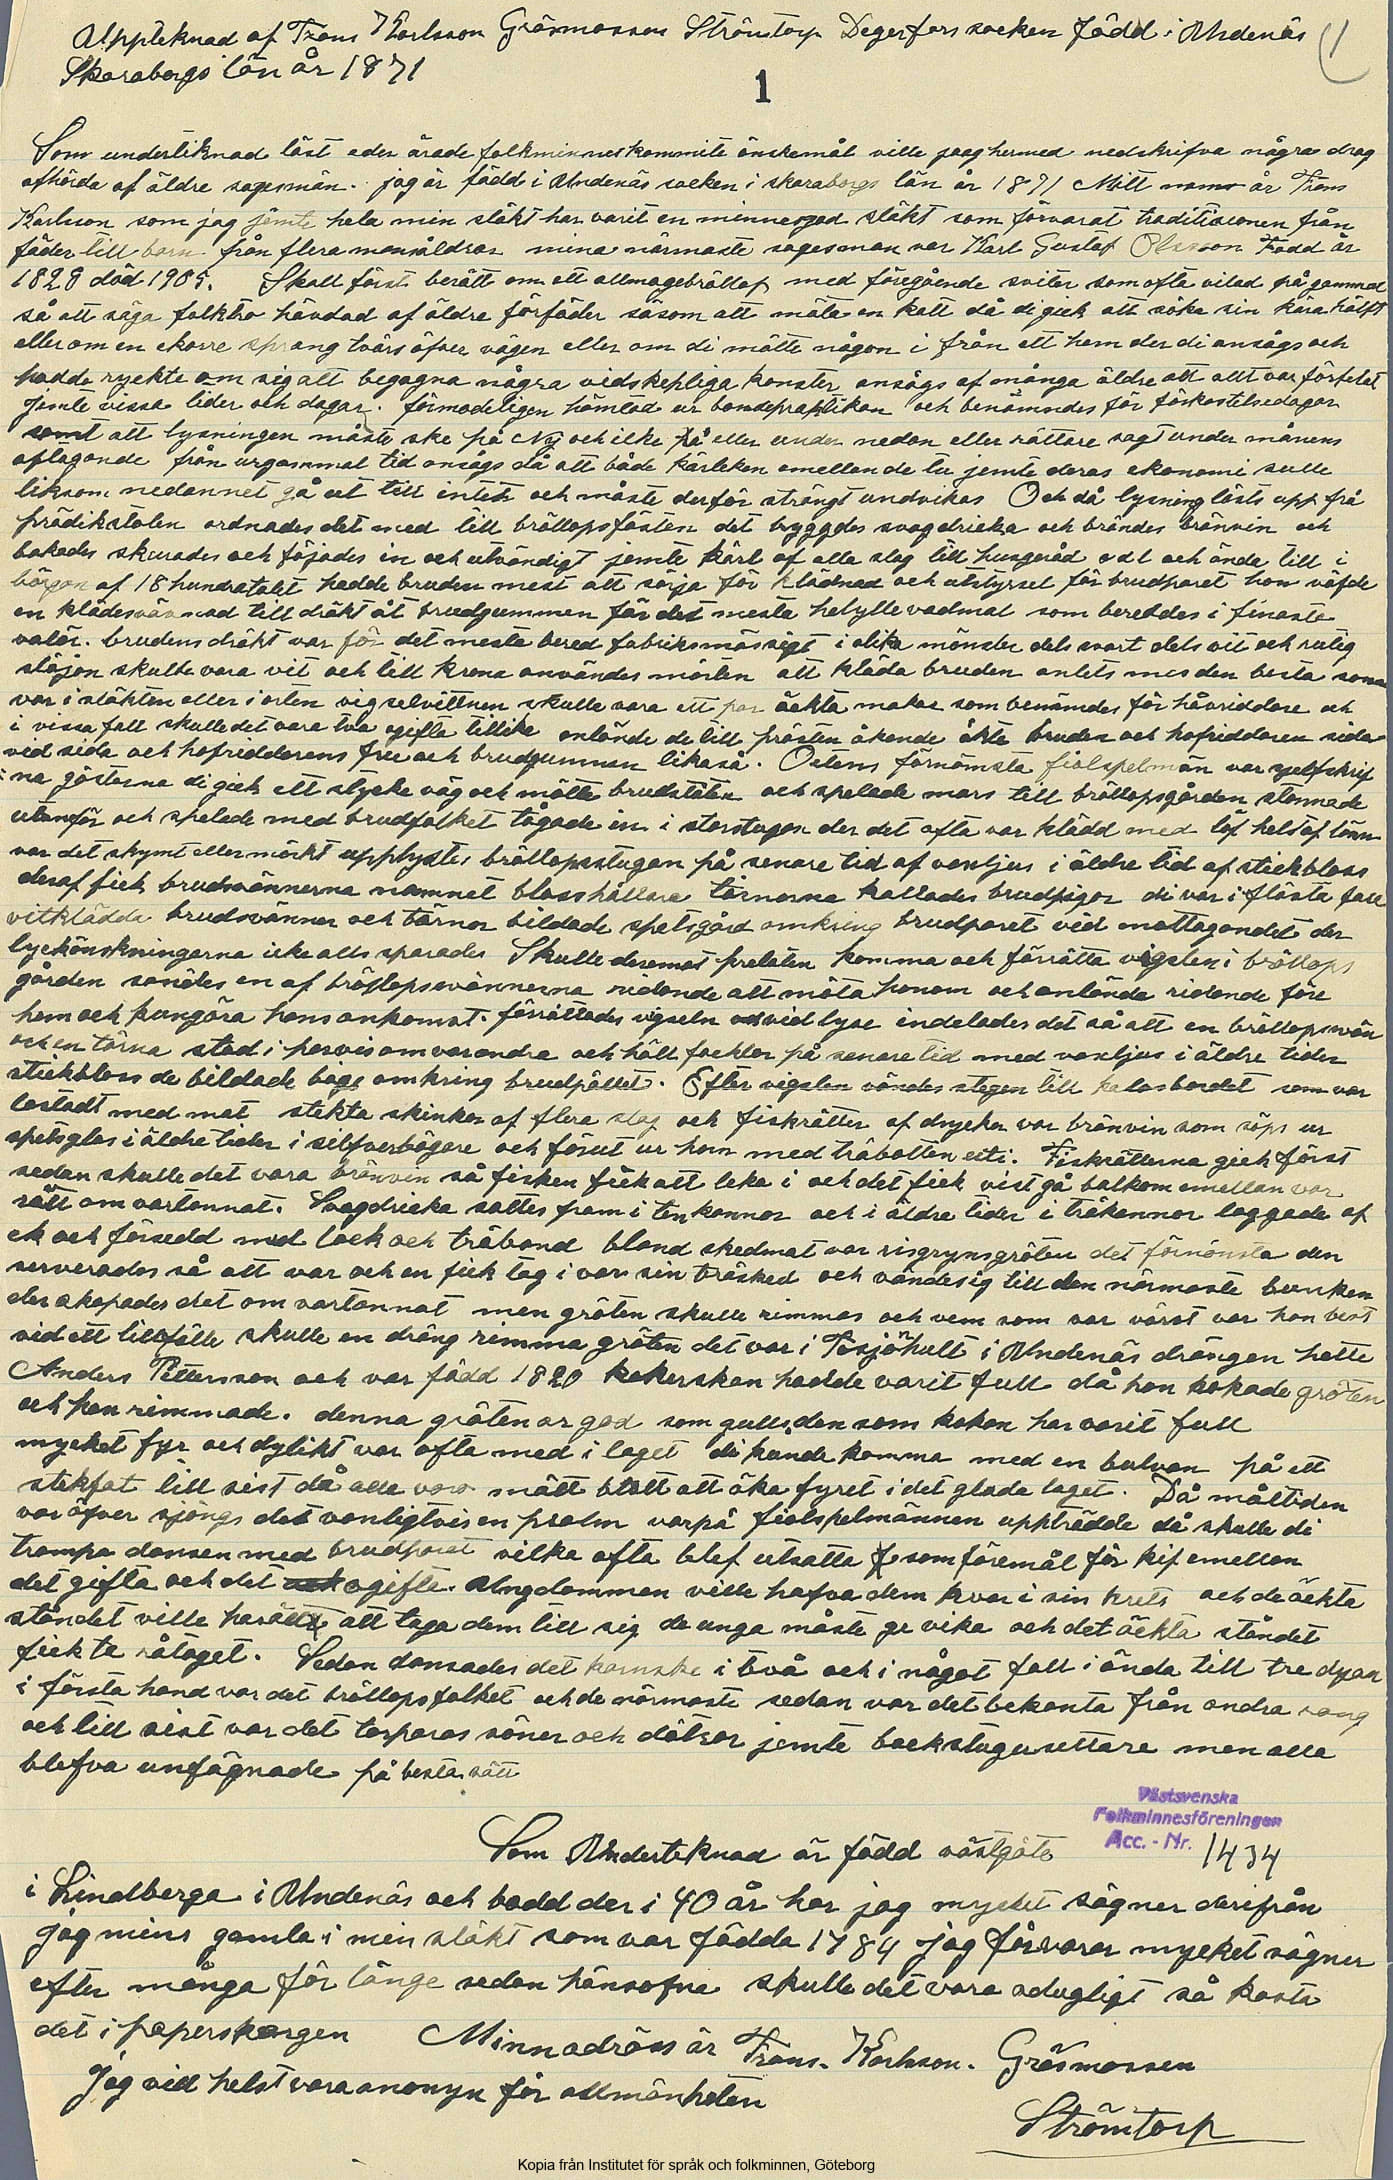 Uppteknad af Frans Karlsson Gräsmossen Strömtorp Degerfors socken född i Undenäs
Skaraborgs län år 1871
1
1
Som undertiknad läst eder ärade folkminneskommite önskemål ville jaag hermed nedskrifva några drag
afhörda af äldre sagesmän. jag är född i Undenäs socken i skaraborgs län år 1871 Mitt namn är Frans
Karlsson som jag jämte hela min släkt har varit en minnesgod släkt som förvarat traditisionen från
fäder till barn från flera mansåldrar mina närmaste sagesman var Karl Gustaf Olausson Född år
1828 död 1905. Skall först berätt om ett allmogebröllop med föregående sviter som ofta vilad på gammal
så att säga folktro hävdad af äldre förfäder såsom att möta en katt då di gick att söka sin kära hälft
eller om en ekorre sprang tvärs öfver vägen eller om di mötte någon i från ett hem der di ansågs och
hadde ryckte om sig att begagna några vidskepliga konster ansågs af många äldre att allt var förfelat
jemte vissa tider och dagar. förmodeligen hämtad ur bondepraktikan och benämndes för förkastelsedagar
samt att lysningen måste ske på Ny och icke på eller under nedan eller rättare sagt under månens
aftagande från urgammal tid ansågs då att både kärleken emellan de tu jemte deras ekonomi sulle
liksom nedannet gå ut till intet och måste derför strängt undvikas Och då lysning lästs upp frå
prädikstolen ordnades det med till bröllopsfästen det bryggdes svagdricka och brändes bränvin och
bakades skurades och föjades in och utvändigt jemte kärl af alla slag till husgeråd o d l och ända till i
börgan af 18 hundratalet hadde bruden mest att sörja för klädnad och utstyrsel för brudparet hon väfde
en klädesvävnad till dräkt åt brudgummen för det mesta helylle vadmal som bereddes i finaste
valör. brudens dräkt var för det mesta bered fabriksmässigt i olika mönster dels svart dels vit och rutig
slöjan skulle vara vit och till krona användes mörten att kläda bruden anlets mes den besta som
var i släkten eller i orten vigselvittnen skulle vara ett par äckta makar som benämdes för håvriddare och
i vissa fall skulle det vara två ogifta tillike anlände de till prästen åkende åkte bruden och hofriddaren sida
ved sida och hofridderens fru och brudgumman likasa. Ortens förnämsta fiolspelmän var sjelfskrif
na gästerna di gick ett stycke väg och mötte brudståten och spelade mars till bröllopsgården stannade
utanför och spelade med brudfolket tågade in i storstugan der det ofta var klädd med löf helst af lönn
var det skymt eller mörkt upplystes bröllopsstugan på senare tid af vaxljus i äldre tid af stickbloss
deraf fick brudsvännerna namnet blosshållare tärnorna kallades brudpigor di var i flästa fall
vitklädda brudsvänner och tärnor bildade spetsgård omkring brudparet vid mottagandet der
lyckönskningarna icke alls sparades Skulle deremot prelaten komma och förrätta vigslen i bröllops
gården sändes en af bröllopsvännerna ridande att möta honom och anlände ridande före
hem och kungöra hans ankomst. förrättades vigseln vid lyse indelades det så att en bröllopsvän
och en tärna stod i parvis om varandra och höll facklor på senare tid med vaxljus i äldre tider
stickbloss de bildade båge omkring brudpället. Efter vigslen vändes stegen till kalasbordet som var
lastadt med mat stekta skinkor af flera slag och fiskrätter af drycker var bränvin som söps ur
spetsglas i äldre tider i silfverbägare och förut ur horn med träbotten eiti. Fiskrätterna gick först
sedan skulle det vara bränvin så fisken fick att leka i och det fick vist gå balkom emellan var
rätt om vartannat. Svagdricka sattes fram i ten kannor och i äldre tider i träkannor laggade af
ek och försedd med lock och träband bland skedmat var risgrynsgröten det förnämsta den
serverades så att var och en fick tag i var sin träsked och vände sig till den närmaste bunken
der skapades det om vartannat men gröten skulle rimmas och vem som var värst var han best
vid ett tillfälle skulle en dräng rimma gröten det var i Tosjöhult i Undenäs drängen hette
Anders Pettersson och var född 1820 kokerskan hadde varit full då hon kokade gröten
och han rimmade. denna gröten ar god som gull, den som kokan har varit full
mycket fyr och dylikt var ofta med i laget di kunde komma med en bulvan på ett
stekfat till sist då alla voro mätt blott att öka fyret i det glada laget. Då måltiden
var öfver sjöngs det vanligtvis en psalm varpå fiolspelmännen uppträdde då skulle di
trampa dansen med brudparet vilka ofta blef utsatta som föremål för kif emellan
det gifta och det ogifte. Ungdommen ville hafva dem kvar i sin krets och de äckta
ståndet ville ha rätt att taga dem till sig de unga måste ge vika och det äckta ståndet
fick ta råtaget. Sedan dansades det kanske i två och i något fall i ända till tre dygn
i första hand var det bröllopsfolket och de närmaste sedan var det bekanta från andra rang
och till sist var det torparas söner och dötrar jemte backstugusittare men alla
blefva unfägnade på besta sätt
Västsvenska
Folkminnesföreningen
Acc. - Nr. 1434
Som Undertiknad är född västgöte
i Lindberga i Undenäs och bodd der i 40 år har jag mycket sägner derifrån
jag mins gamla i min släkt som var födda 1784 jag förvarar mycket sägner
efter många för länge sedan hänsofna skulle det vara odugligt så kasta
det i paperskorgen Minn adräss är Frans. Karlsson. Gräsmossen
Jag vill helst vara anonym för allmänheten
Strömtorp
Kopia från Institutet för språk och folkminnen, Göteborg